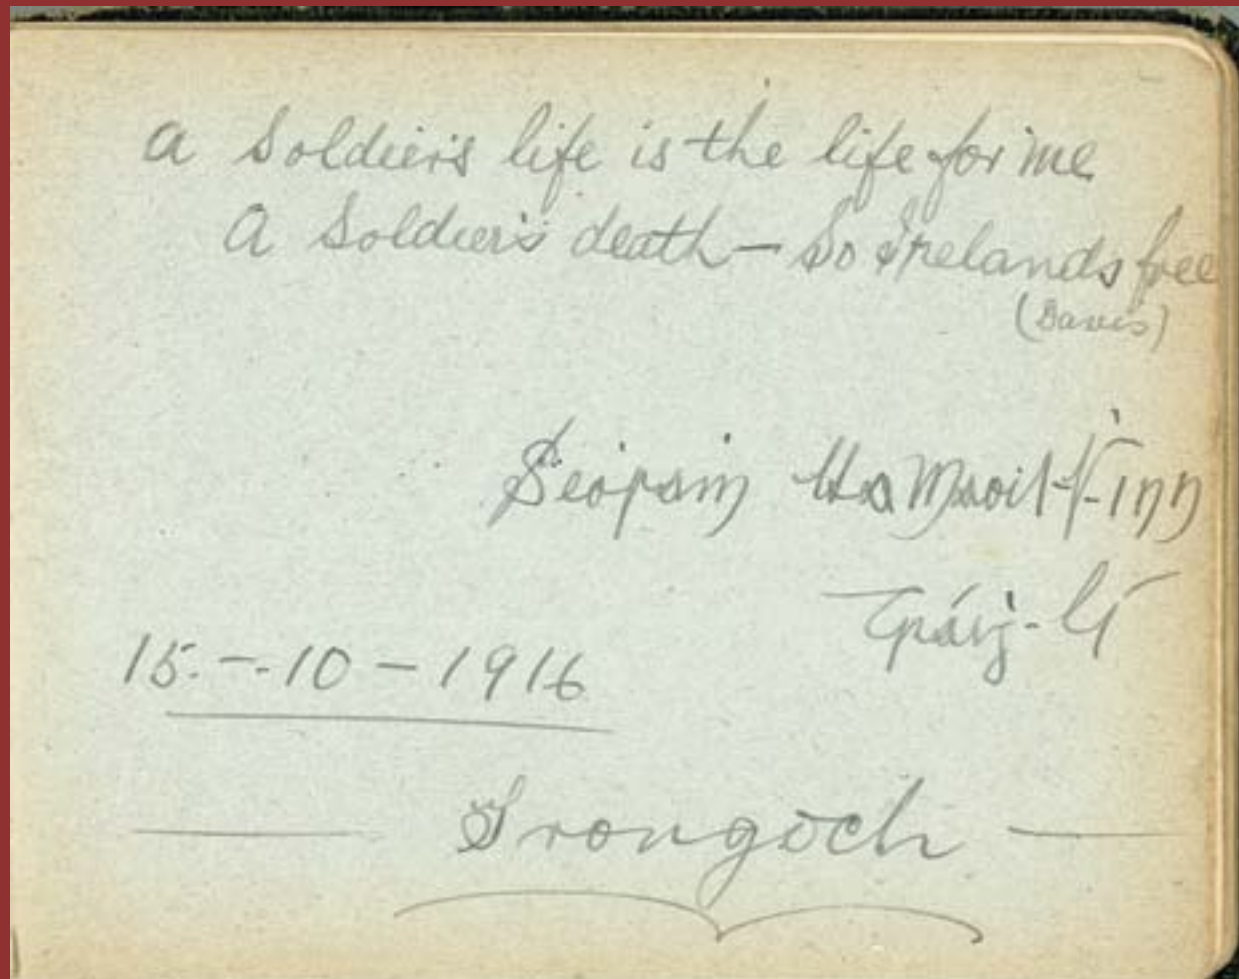 A Soldier's life is the life for me
A Soldier's death – So Irelands free
(Davis)
Seosaim Ua Maoil-Ḟinn
Tráiġ-Lí
15.-.10-1916
Frongoch